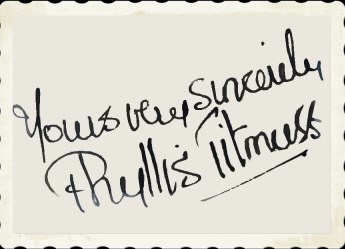 Yours very sincerely
Phyllis Titmuss